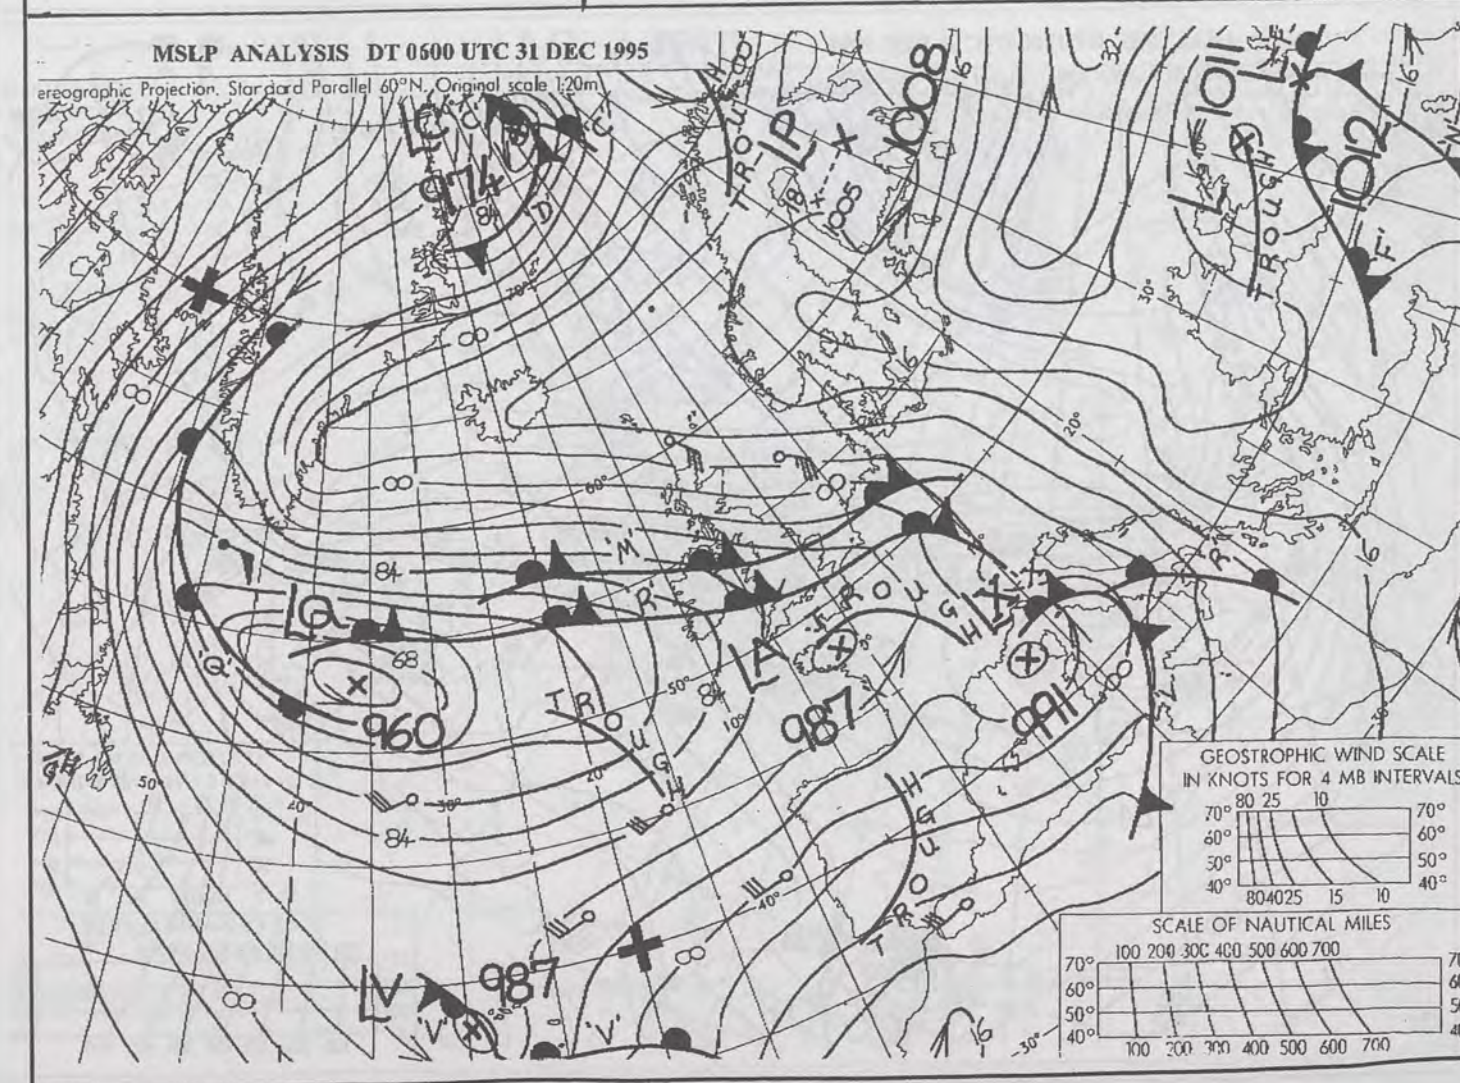 MSLP ANALYSIS DT 0600 UTC 31 DEC 1995
ereographic Projection. Standard Parallel 60°N. Original scale 1:20m
LC
'C'
974
84
'D'
TROUGH
LP
1008
16
18
1005
32
L
1011
TROUGH
L
1012
16
'F'
70°
8
8
30°
20°
8
60°
8
'M'
84
R
LQ
68
960
'Q'
TROUGH
R
LX
LA
987
TROUGH
991
8
16
50°
84
10°
20°
30°
40°
50°
84
TROUGH
40°
LV
987
'V'
'V'
8
8
16
30°
GEOSTROPHIC WIND SCALE
IN KNOTS FOR 4 MB INTERVALS
80 25 10
70° 70°
60° 60°
50° 50°
40° 40°
80 40 25 15 10
SCALE OF NAUTICAL MILES
100 200 300 400 500 600 700
70°
60°
50°
40°
100 200 300 400 500 600 700